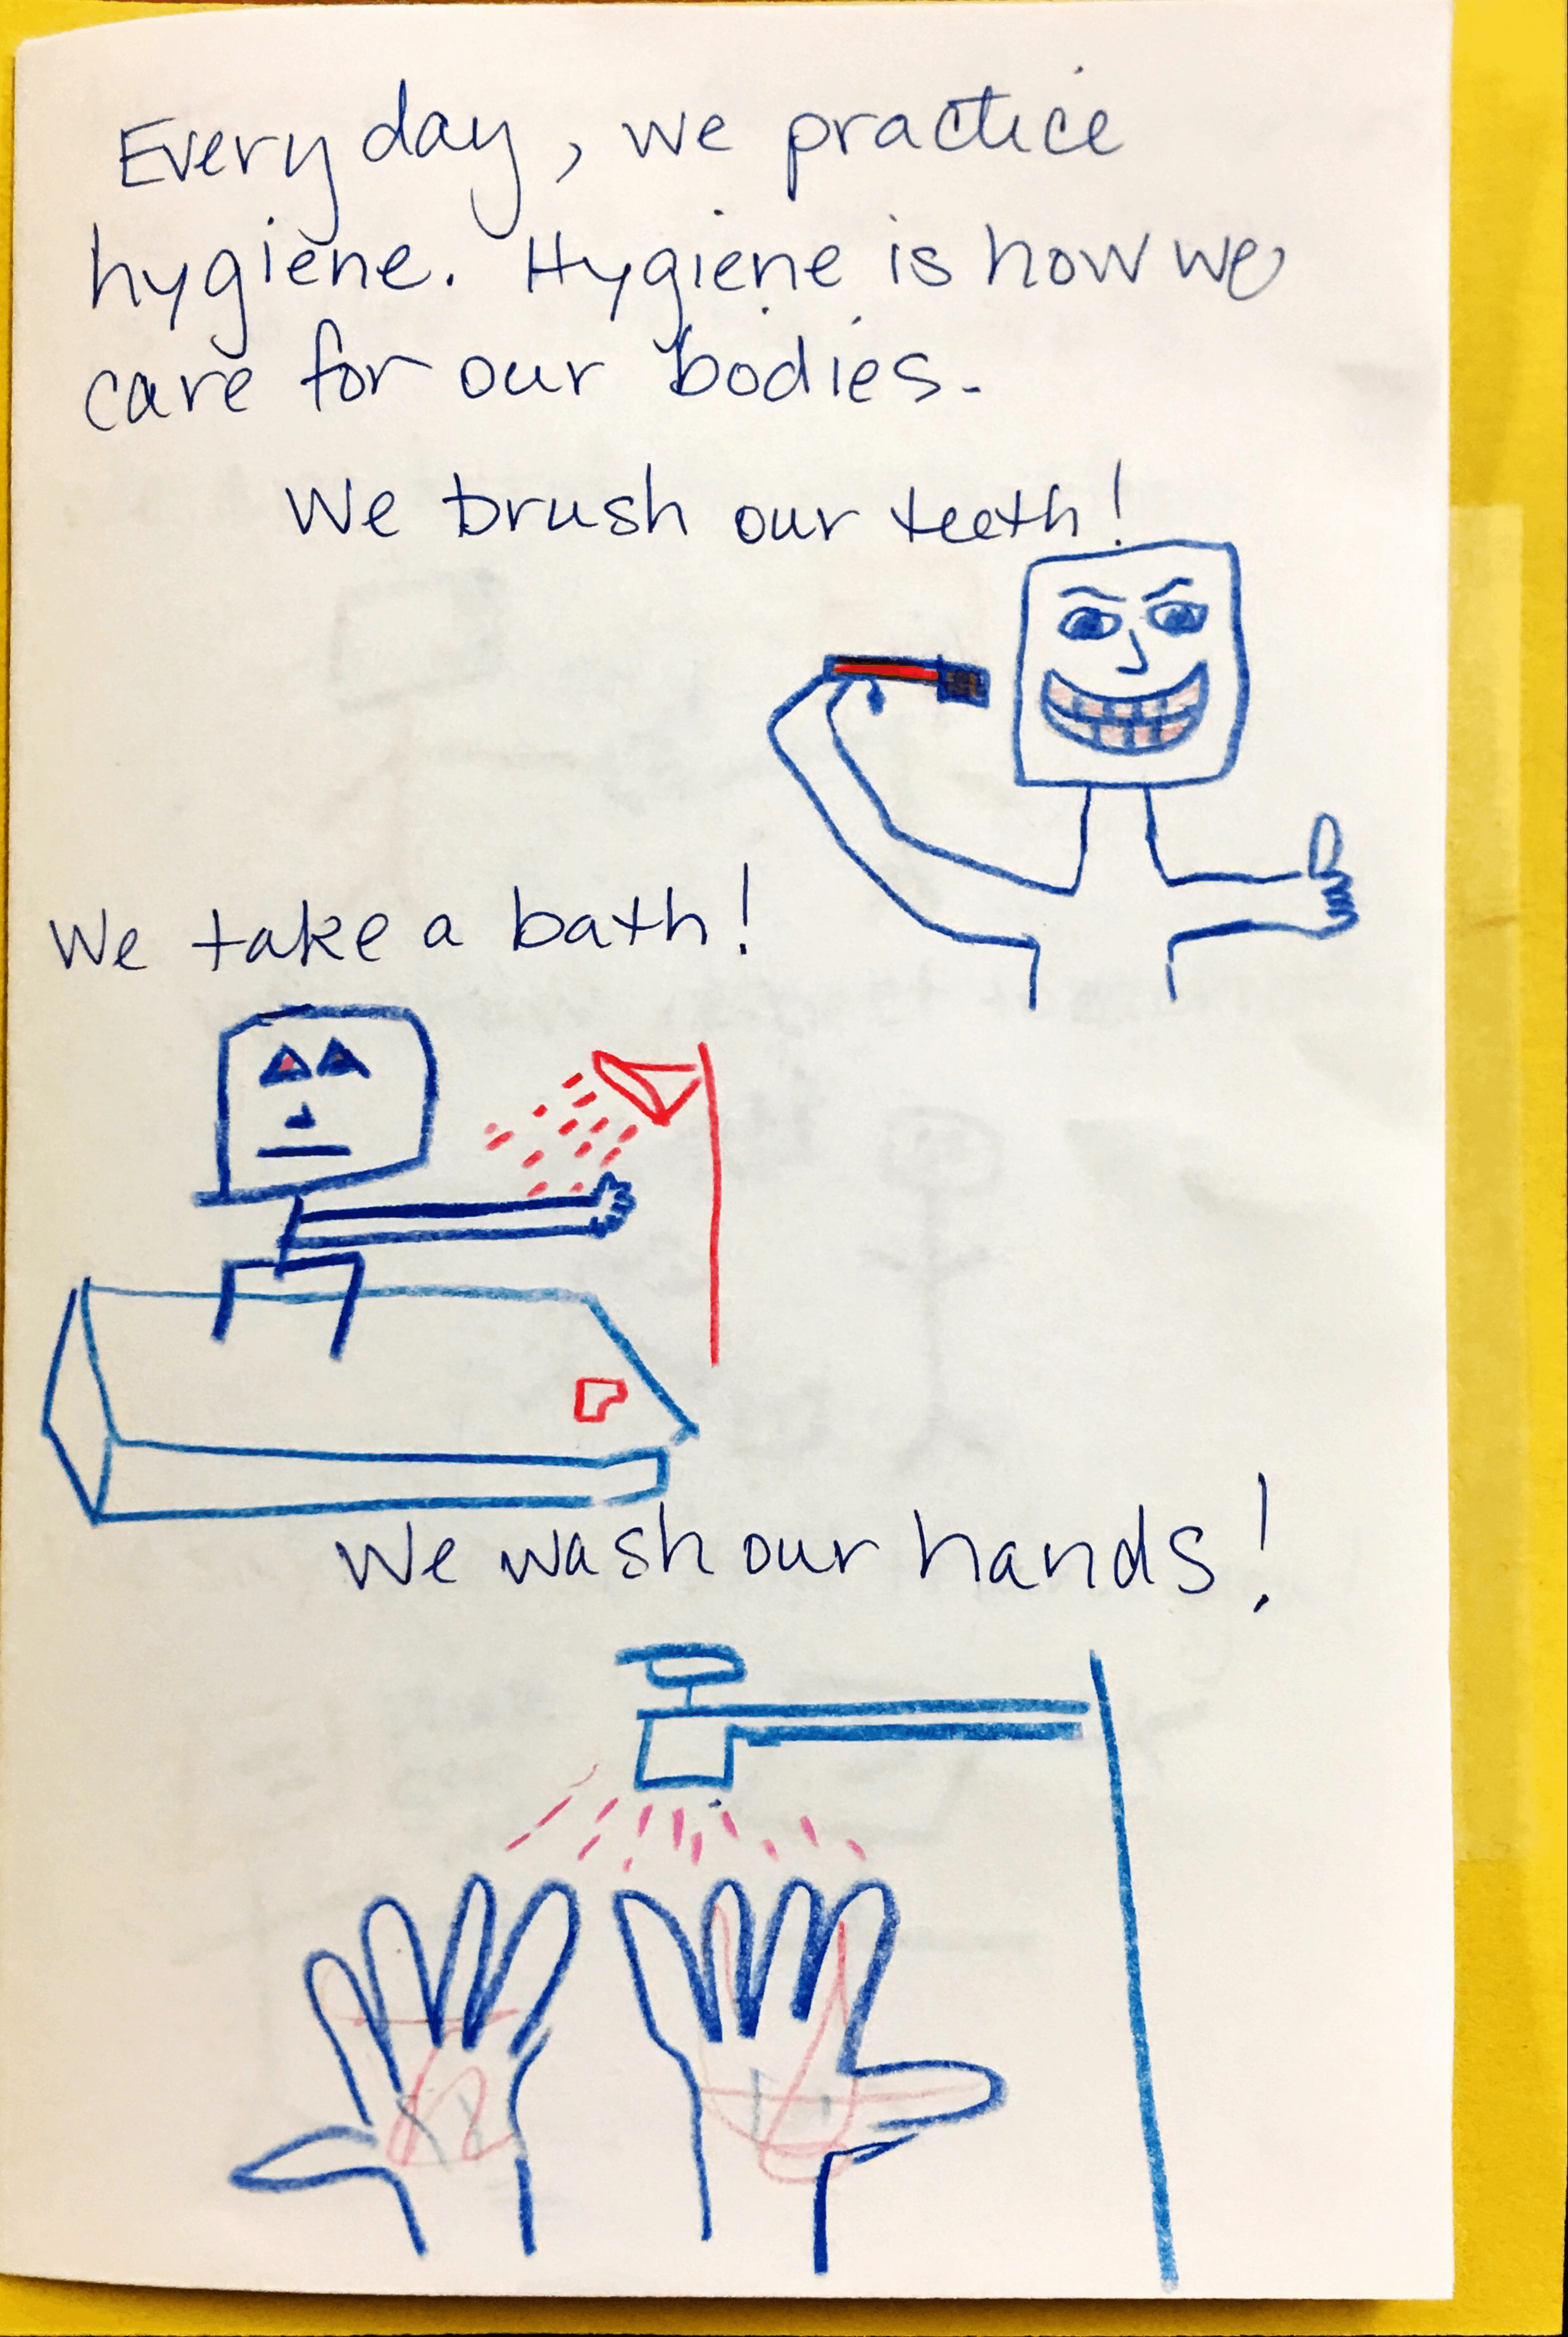 Every day, we practice
hygiene. Hygiene is how we
care for our bodies.
We brush our teeth!
We take a bath!
We wash our hands!